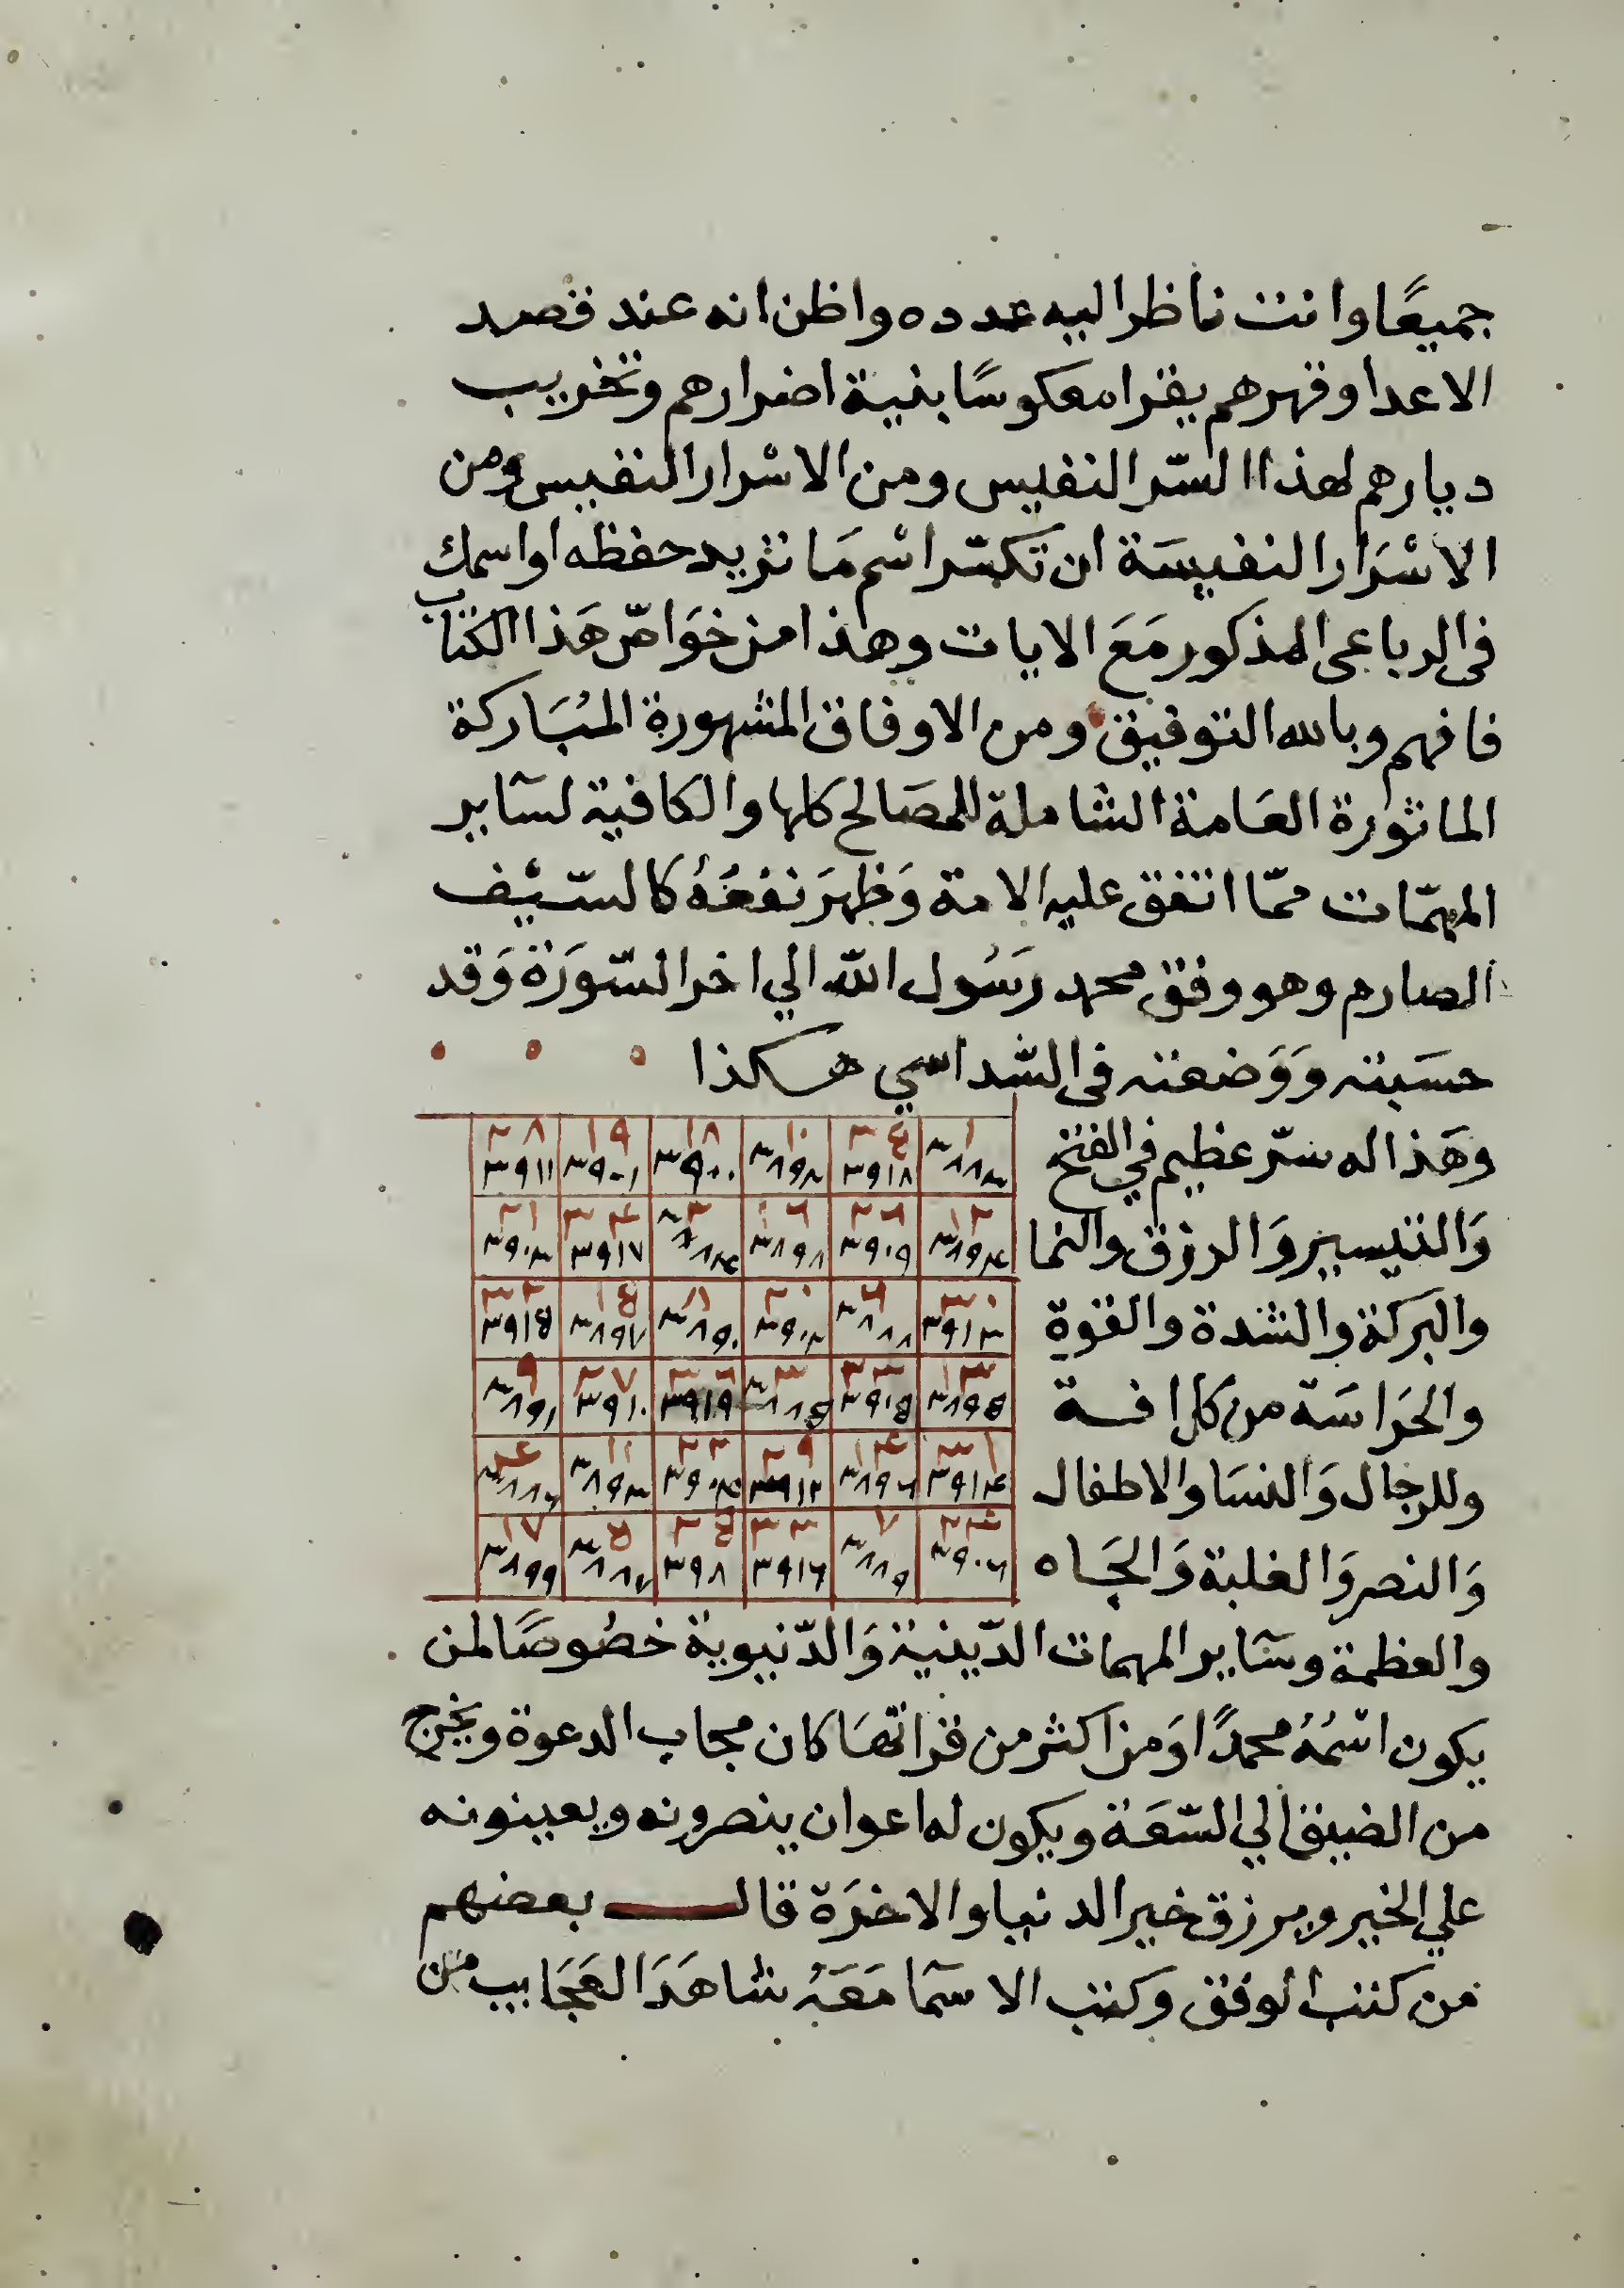 جميعًا وانت ناظر اليه عدده واظن انه عند قصد
الاعدا وقهرهم يقرا معكوسًا بنية اضرارهم وتخريب
ديارهم لهذا السّر النفيس ومن الاسْرار النفيس ومن
الاسْرَار النفيسَة ان تكسّر اسْم مَا تريد حفظه او اسمك
فى الرباعى المذكور مَعَ الايات وهذا من خوَاصّ هَذا الكتاب
فافهم وبالله التوفيق ومن الاوفاق المشهورة المبَاركة
الماثورة العَامة الشاملة للمصَالح كلها والكافية لسَاير
المهمّات ممّا اتفق عليه الامة وَظهرَ نفعُهُ كالسّيْف
الصارم وهو وفق محمد رسُول الله الي اخر السّورَة وَقد
حسَبته وَوَضعته فى السّداسي هكذا
١ ٣٨٨٣ ٣٤ ٣٩١٨ ١٠ ٣٨٩٢ ١٨ ٣٩٠٠ ١٩ ٣٩٠١ ٢٨ ٣٩١١
١٢ ٣٨٩٤ ٢٦ ٣٩٠٩ ١٦ ٣٨٩٨ ٢ ٣٨٨٤ ٣٤ ٣٩١٧ ٢١ ٣٩٠٣
٣٠ ٣٩١٣ ٦ ٣٨٨٨ ٢٠ ٣٩٠٢ ٨ ٣٨٩٠ ١٥ ٣٨٩٧ ٣٢ ٣٩١٥
١٣ ٣٨٩٥ ٢٣ ٣٩٠٥ ٣ ٣٨٨٥ ٣٦ ٣٩١٩ ٢٧ ٣٩١٠ ٩ ٣٨٩١
٣١ ٣٩١٤ ١٤ ٣٨٩٦ ٢٩ ٣٩١٢ ٢٢ ٣٩٠٤ ١١ ٣٨٩٣ ٤ ٣٨٨٦
٢٤ ٣٩٠٦ ٧ ٣٨٨٩ ٣٣ ٣٩١٦ ٢٥ ٣٩٨ ٥ ٣٨٨٧ ١٧ ٣٨٩٩
وهَذا له سّر عظيم في الفتح
وَالتيسير وَالرزق والنما
والبركة والشدة والقوة
والحَراسَة من كل افة
وللرجال وَالنسَا والاطفال
وَالنصر وَالغلبة وَالجَاه
والعظمة وسَاير المهمات الدّينية وَالدّنيوية خصُوصًا لمن
يكون اسْمُهُ محمدًا وَمن اكثر من قراتهَا كان مجاب الدعوة ويخرج
من الضيق الي السّعَة ويكون له اعوان ينصرونه ويعينونه
علي الخير ويرزق خير الدنيا والاخرَة قال بعضهم
من كتب الوفق وكتب الاسمَا مَعَهُ شاهَدَ العَجَايب من